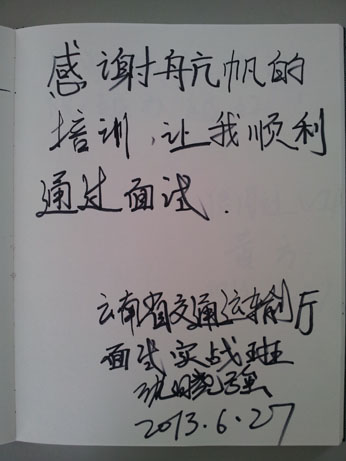 感谢舟亢帆的
培训,让我顺利
通过面试.
云南省交通运输厅
面试实战班
2013.6.27